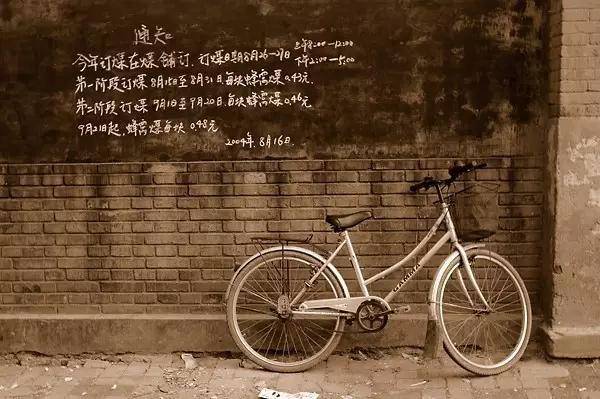 通知
今年订煤在煤铺订.订煤日期8月26-27日 上午8:00-12:00
下午2:00-5:00
第一阶段订煤 8月15日至8月31日,每块蜂窝煤0.43元.
第二阶段订煤 9月1日至9月20日,每块蜂窝煤0.46元
9月21日起,蜂窝煤每块 0.48元
2004年.8月16日.